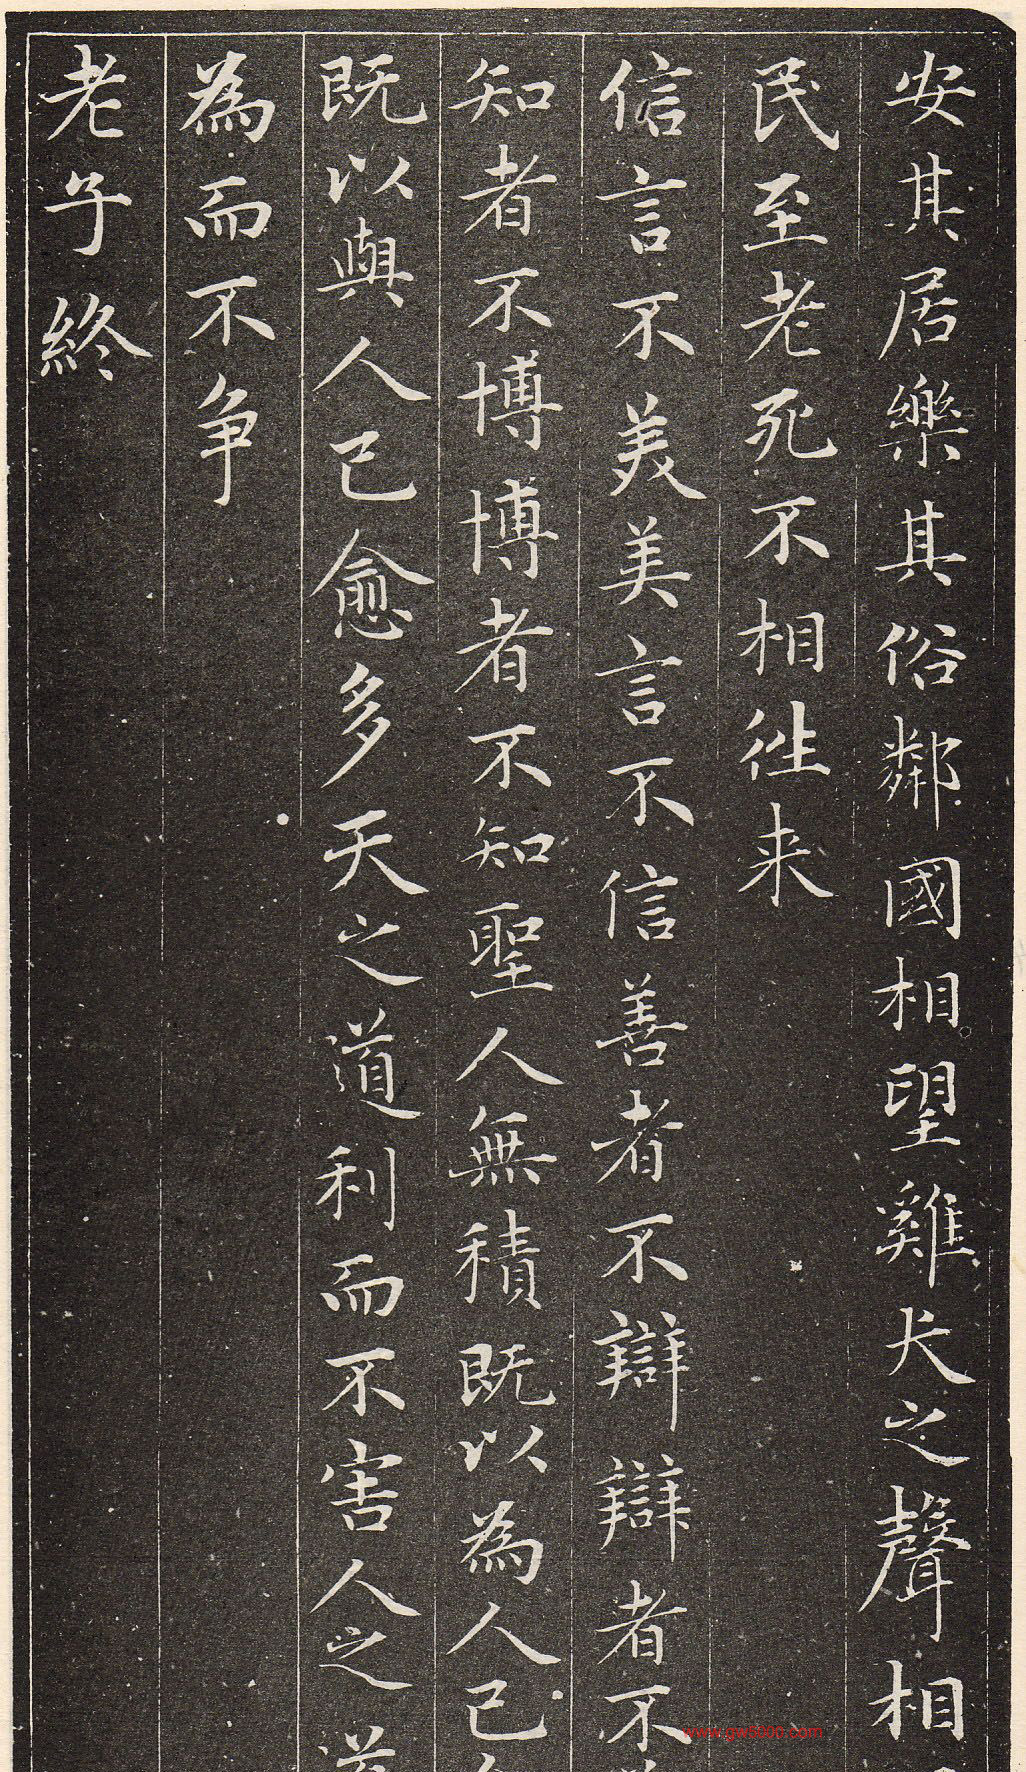 安其居樂其俗鄰國相望雞犬之聲相
民至老死不相往来
信言不美美言不信善者不辯辯者不
知者不博博者不知聖人無積既以為人己
既以與人已愈多天之道利而不害人之
為而不争
老子終
www.gw5000.com